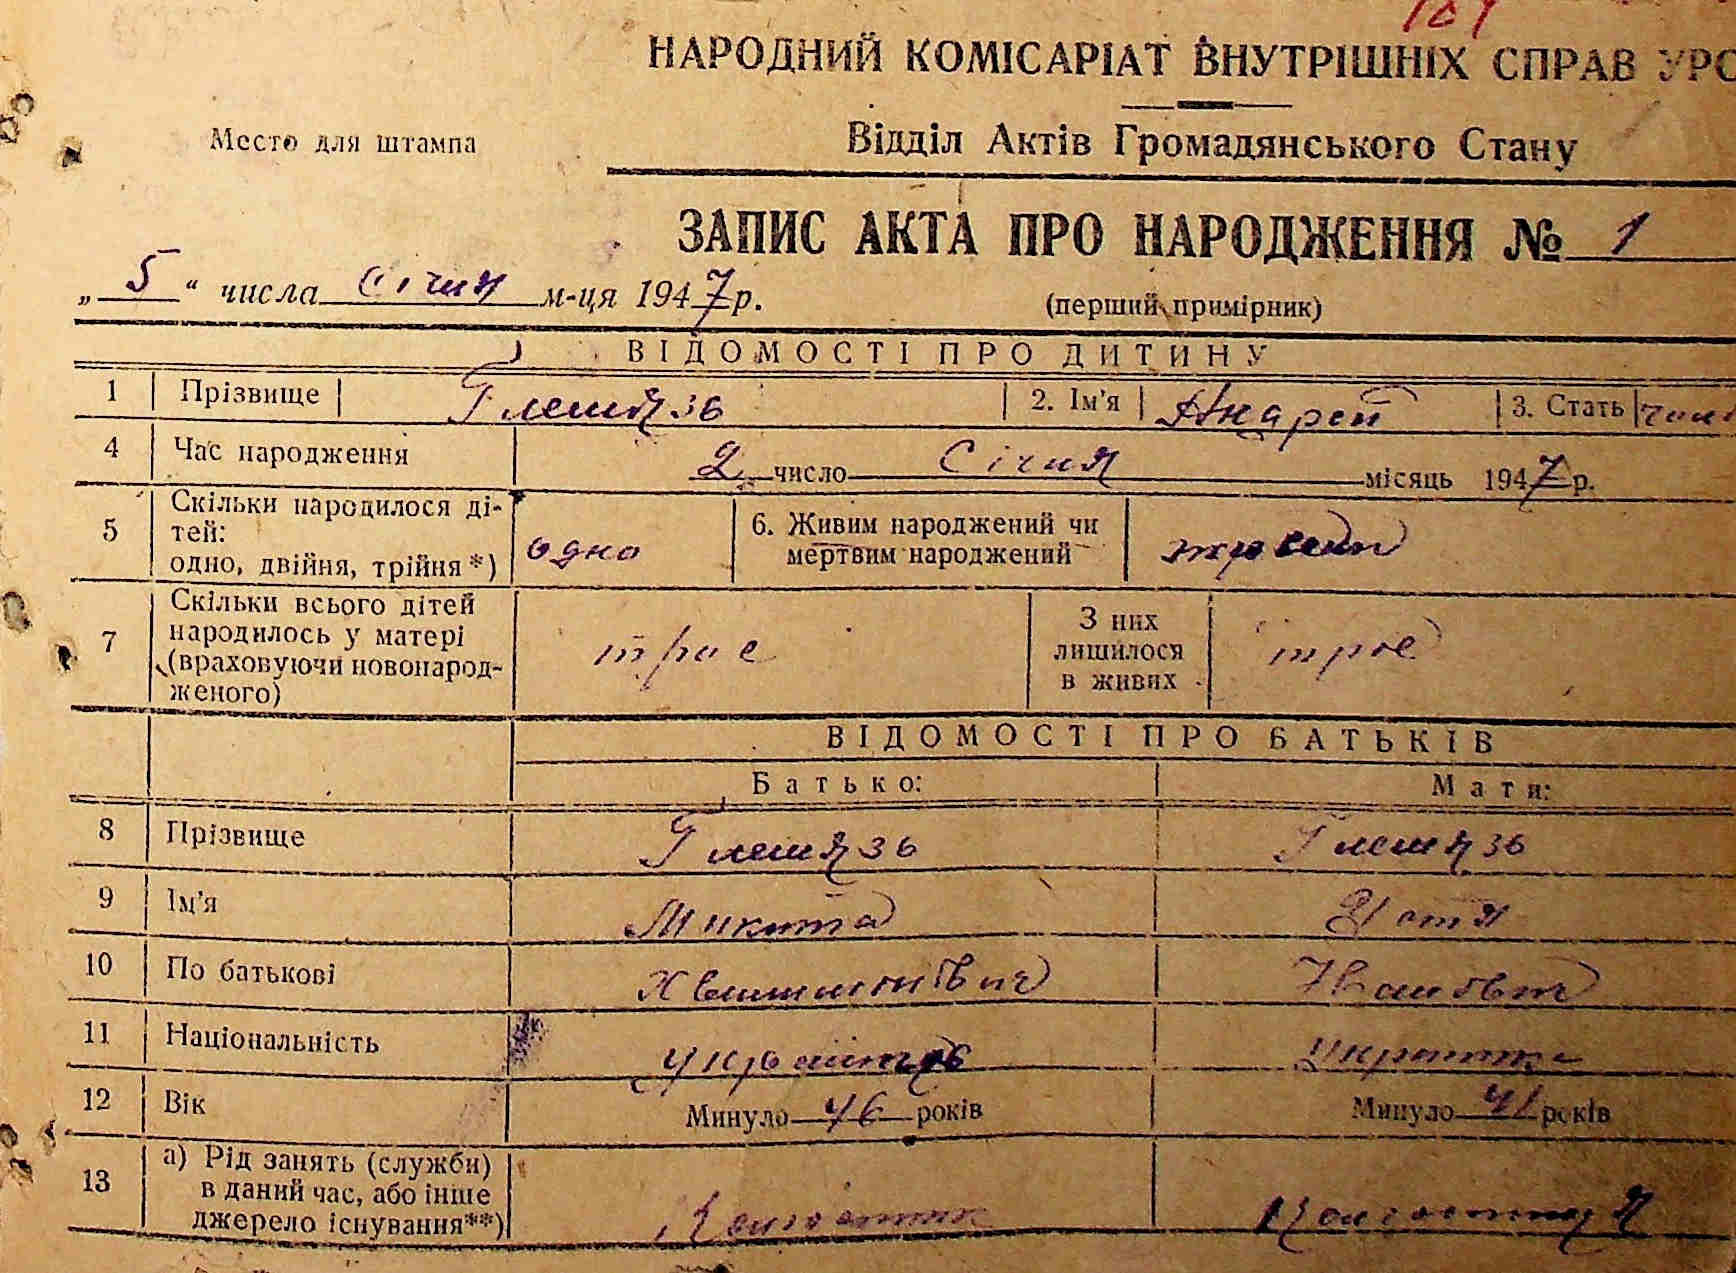 НАРОДНИЙ КОМІСАРІАТ ВНУТРІШНІХ СПРАВ УРС
Место для штампа
Відділ Актів Громадянського Стану
ЗАПИС АКТА ПРО НАРОДЖЕННЯ № 1
„5“ числа Січня м-ця 1947 р.
(перший примірник)
ВІДОМОСТІ ПРО ДИТИНУ
1 Прізвище 2. Ім'я Андрей 3. Стать чол
4 Час народження 2 число Січня місяць 1947 р.
5 Скільки народилося ді-
тей:
одно, двійня, трійня*) одно
6. Живим народжений чи
мертвим народжений
7 Скільки всього дітей
народилось у матері
(враховуючи новонарод-
женого) троє
З них
лишилося
в живих троє
ВІДОМОСТІ ПРО БАТЬКІВ
Батько: Мати:
8 Прізвище
9 Ім'я Микита Устя
10 По батькові
11 Національність українець українка
12 Вік Минуло 46 років Минуло 41 років
13 а) Рід занять (служби)
в даний час, або інше
джерело існування**) Колгоспник Колгоспниця